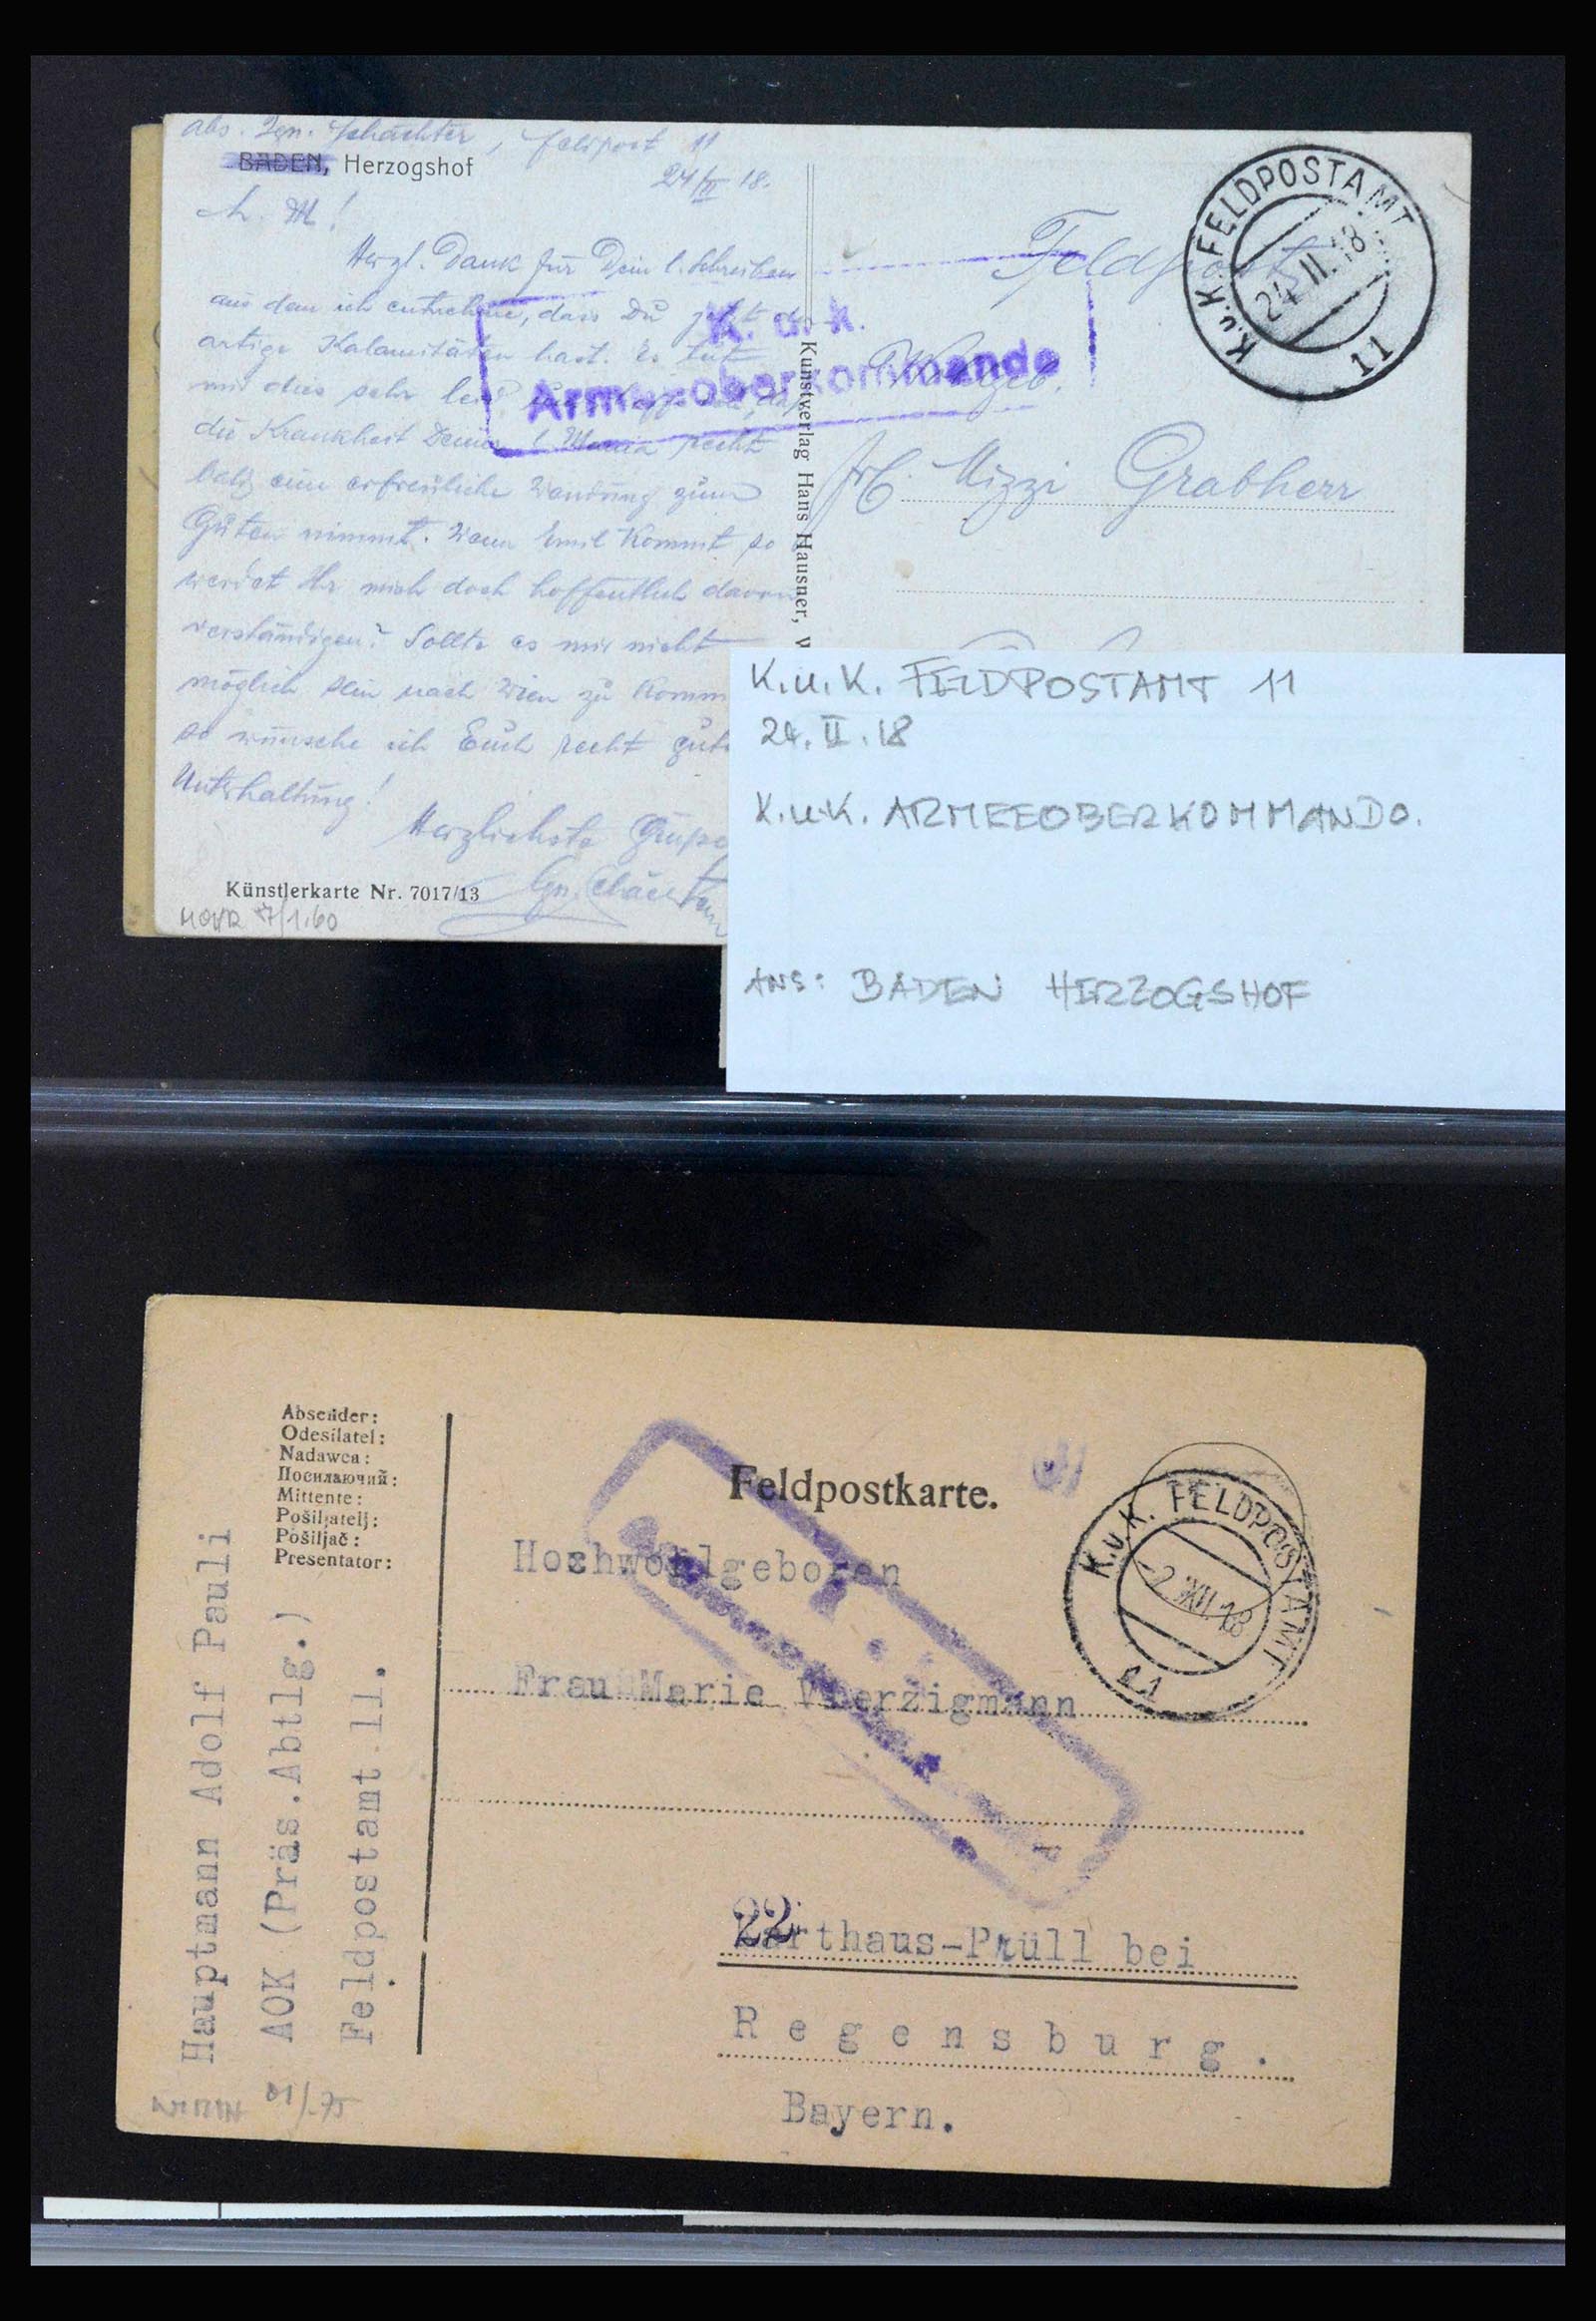 abs. Ign. Schächter, Feldpost 11
BADEN, Herzogshof
24/II 18.
L. M!
Herzl. Dank für Dein l. Schreiben
aus dem ich entnehme, dass Du
artige Kalamitäten hast. Es tut
mir dies sehr leid
die Krankheit Deiner l. Mama recht
bald eine erfreuliche Wendung zum
Guten nimmt. Wenn Emil kommt so
werdet Ihr mich doch hoffentlich davon
verständigen? Sollte es mir nicht
möglich sein nach Wien zu komm
so wünsche ich Euch recht gute
Unterhaltung!
Herzlichste Grüsse
Künstlerkarte Nr. 7017/13
7/1.60
Kunstverlag Hans Hausner, W
K. u. k.
Armeeoberkommando
Feldpost
K.u.K. FELDPOSTAMT
24. II. 18
11
Mizzi Grabherr
K.u.K. FELDPOSTAMT 11
24. II. 18
K.u.K. ARMEEOBERKOMMANDO.
ANS: BADEN HERZOGSHOF
Absender:
Odesílatel:
Nadawca:
Посилаючий:
Mittente:
Pošiljatelj:
Pošiljač:
Presentator:
Hauptmann Adolf Pauli
AOK (Präs.Abtlg.)
Feldpostamt 11.
Feldpostkarte.
K.u.K. FELDPOSTAMT
-2.XII.18
11
Hochwohlgeboren
Frau Marie Vierzigmann
22
Karthaus-Prüll bei
Regensburg.
Bayern.